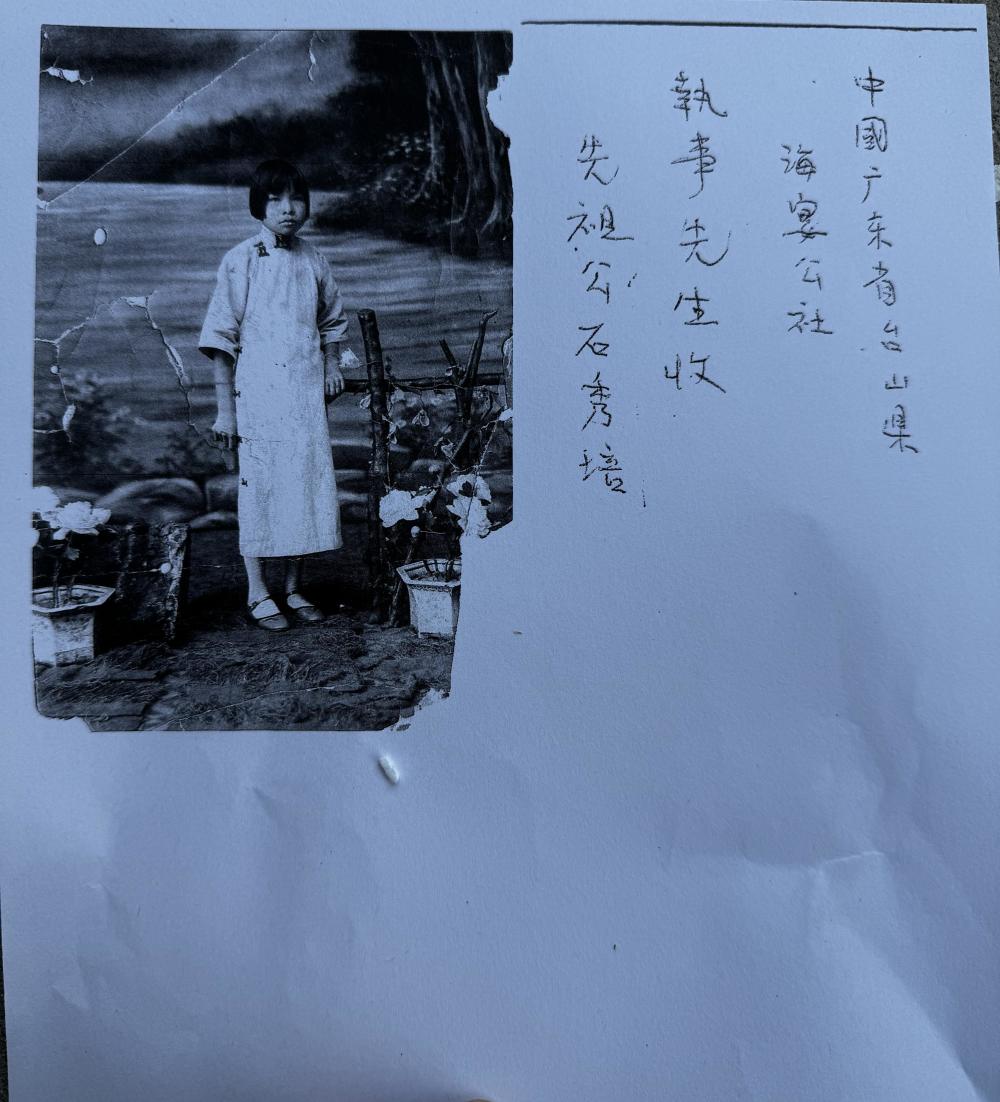 中國广东省台山県
海宴公社
執事先生收
先祖公石秀培